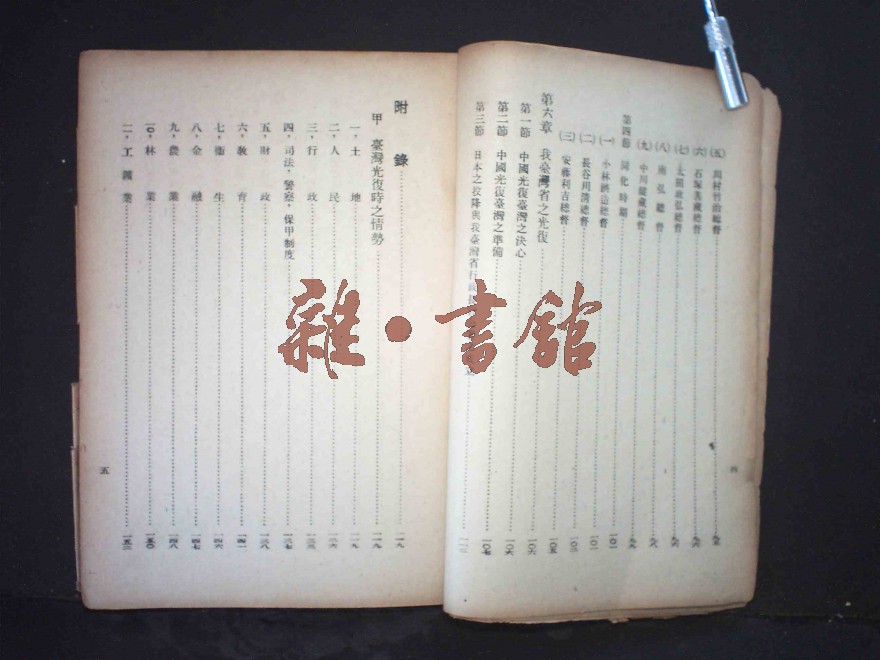 (五) 川村竹治總督……九五
(六) 石塚英藏總督……九六
(七) 太田政弘總督……九六
(八) 南弘總督……九八
(九) 中川健藏總督……九九
第四節 同化時期……一〇一
(一) 小林躋造總督……一〇一
(二) 長谷川清總督……一〇二
(三) 安藤利吉總督……一〇五
第六章 我臺灣省之光復……一〇六
第一節 中國光復臺灣之決心……一〇六
第二節 中國光復臺灣之準備……一〇七
第三節 日本之投降與我臺灣省行政
四
附錄……一一九
甲 臺灣光復時之情勢……一一九
一,土地……一一九
二,人民……一二六
三,行政……一三三
四,司法,警察,保甲制度……一三七
五,財政……一三八
六,教育……一四一
七,衞生……一四六
八,金融……一四七
九,農業……一四八
一〇,林業……一五〇
二,工鑛業……一五二
五
雜·書館